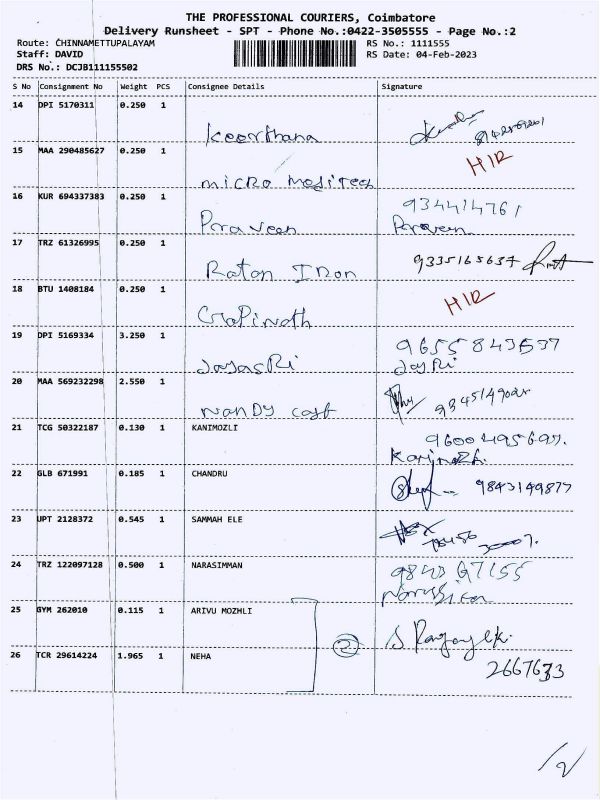 THE PROFESSIONAL COURIERS, Coimbatore
Delivery Runsheet - SPT - Phone No.:0422-3505555 - Page No.:2
Route: CHINNAMETTUPALAYAM RS No.: 1111555
Staff: DAVID RS Date: 04-Feb-2023
DRS No.: DCJB111155502
S No Consignment No Weight PCS Consignee Details Signature
14 DPI 5170311 0.250 1 Keerthana
15 MAA 290485627 0.250 1 HIR
micro meditech
16 KUR 694337383 0.250 1 934414761
Praveen Praveen
17 TRZ 61326995 0.250 1 9335165637
Ratan Iron
18 BTU 1408184 0.250 1 HIR
Gopinath
19 DPI 5169334 3.250 1 9655843537
Jayasri Jaysri
20 MAA 569232298 2.550 1
Nandy cast
21 TCG 50322187 0.130 1 KANIMOZLI 9600495697.
22 GLB 671991 0.185 1 CHANDRU 9843149877
23 UPT 2128372 0.545 1 SAMMAH ELE
24 TRZ 122097128 0.500 1 NARASIMMAN
25 GYM 262010 0.115 1 ARIVU MOZHLI
2
26 TCR 29614224 1.965 1 NEHA
/2